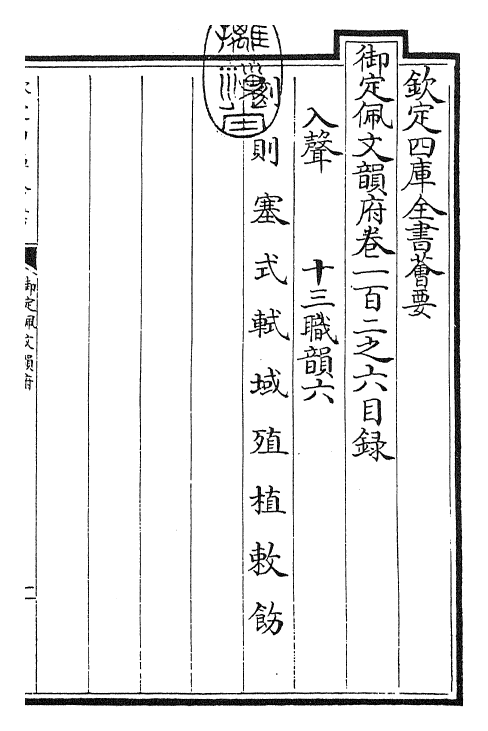 欽定四庫全書薈要
御定佩文韻府卷一百二之六目録
入聲 十三職韻六
則 塞 式 軾 域 殖 植 敕 飭
御定佩文韻府